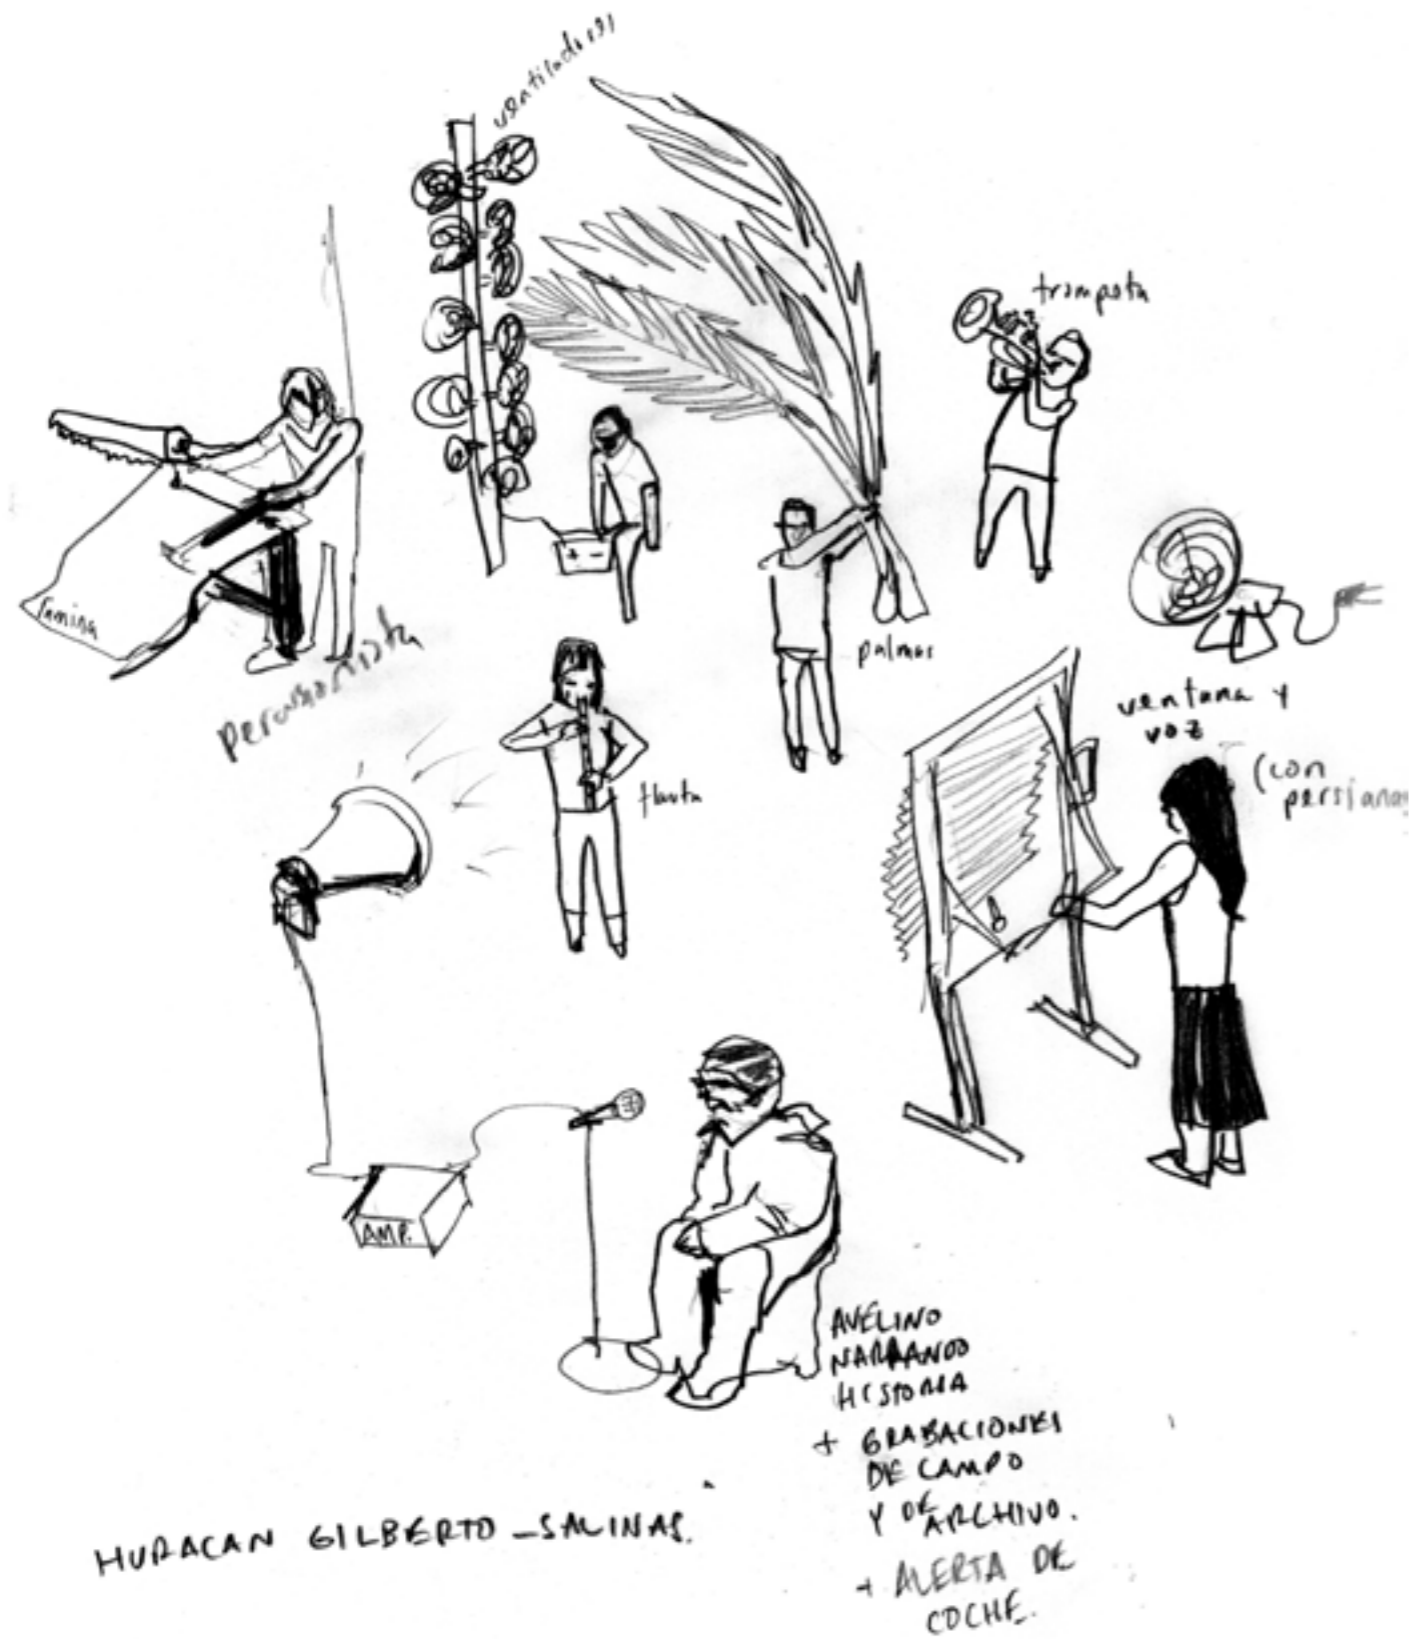 ventiladores
trompeta
lamina
percusionista
palmas
flauta
ventana y
voz
(con
persianas
+ -
AMP.
AVELINO
NARRANDO
HISTORIA
+ GRABACIONES
DE CAMPO
Y DE
ARCHIVO.
+ ALERTA DE
COCHE.
HURACAN GILBERTO - SALINAS.